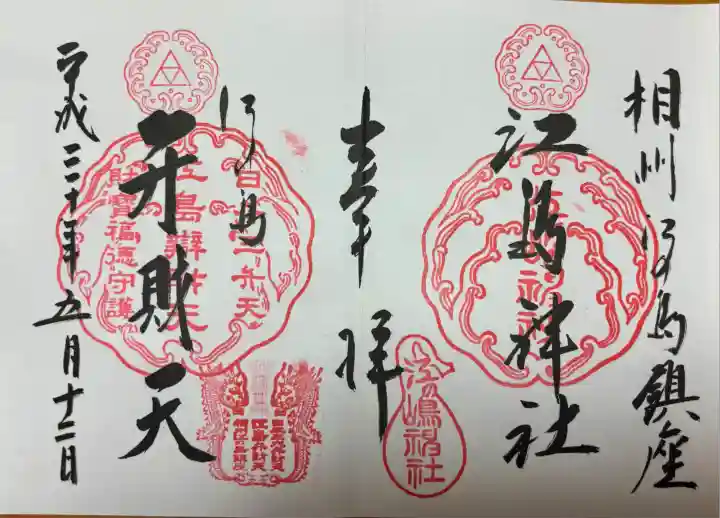 相州江の島鎮座
江島神社
奉拝
江嶋神社
江の島
弁財天
日本一弁天
江島辯財天
財寶福徳守護
平成三十年五月十二日